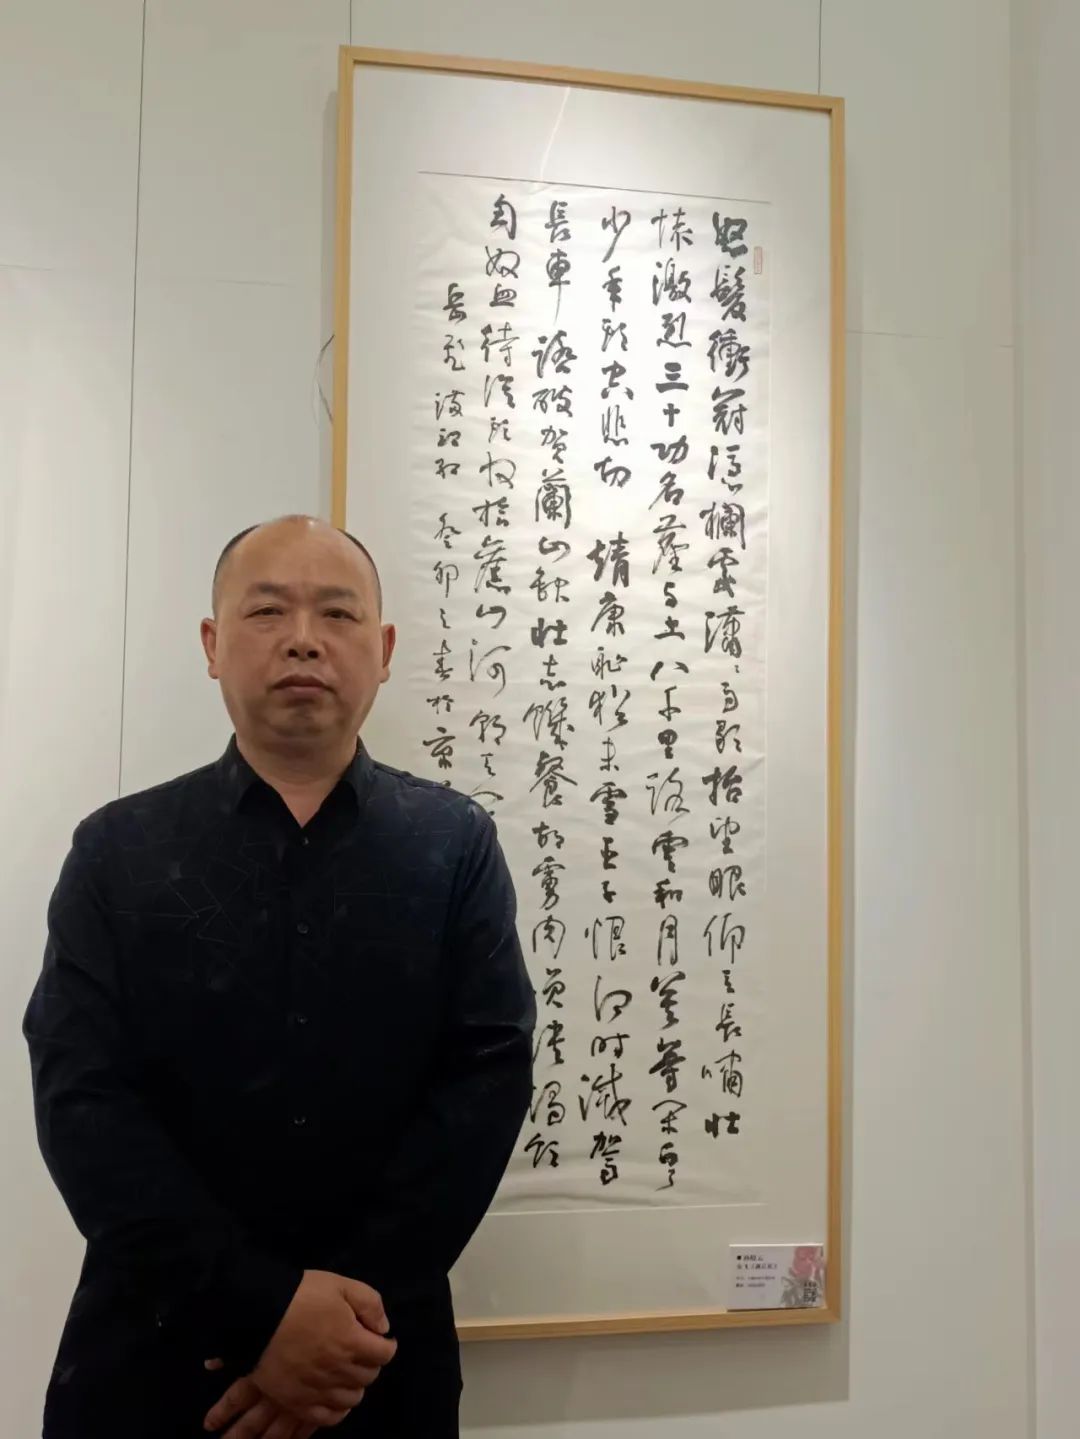 怒髮衝冠憑欄處瀟瀟雨歇抬望眼仰天長嘯壯
懷激烈三十功名塵与土八千里路雲和月莫等閑白了
少年頭空悲切 靖康恥猶未雪臣子恨何時滅駕
長車踏破賀蘭山缺壯志饑餐胡虜肉笑談渴飲
匈奴血待從頭收拾舊山河朝天
岳飛滿江紅 癸卯之春於京
岳飞《满江红》